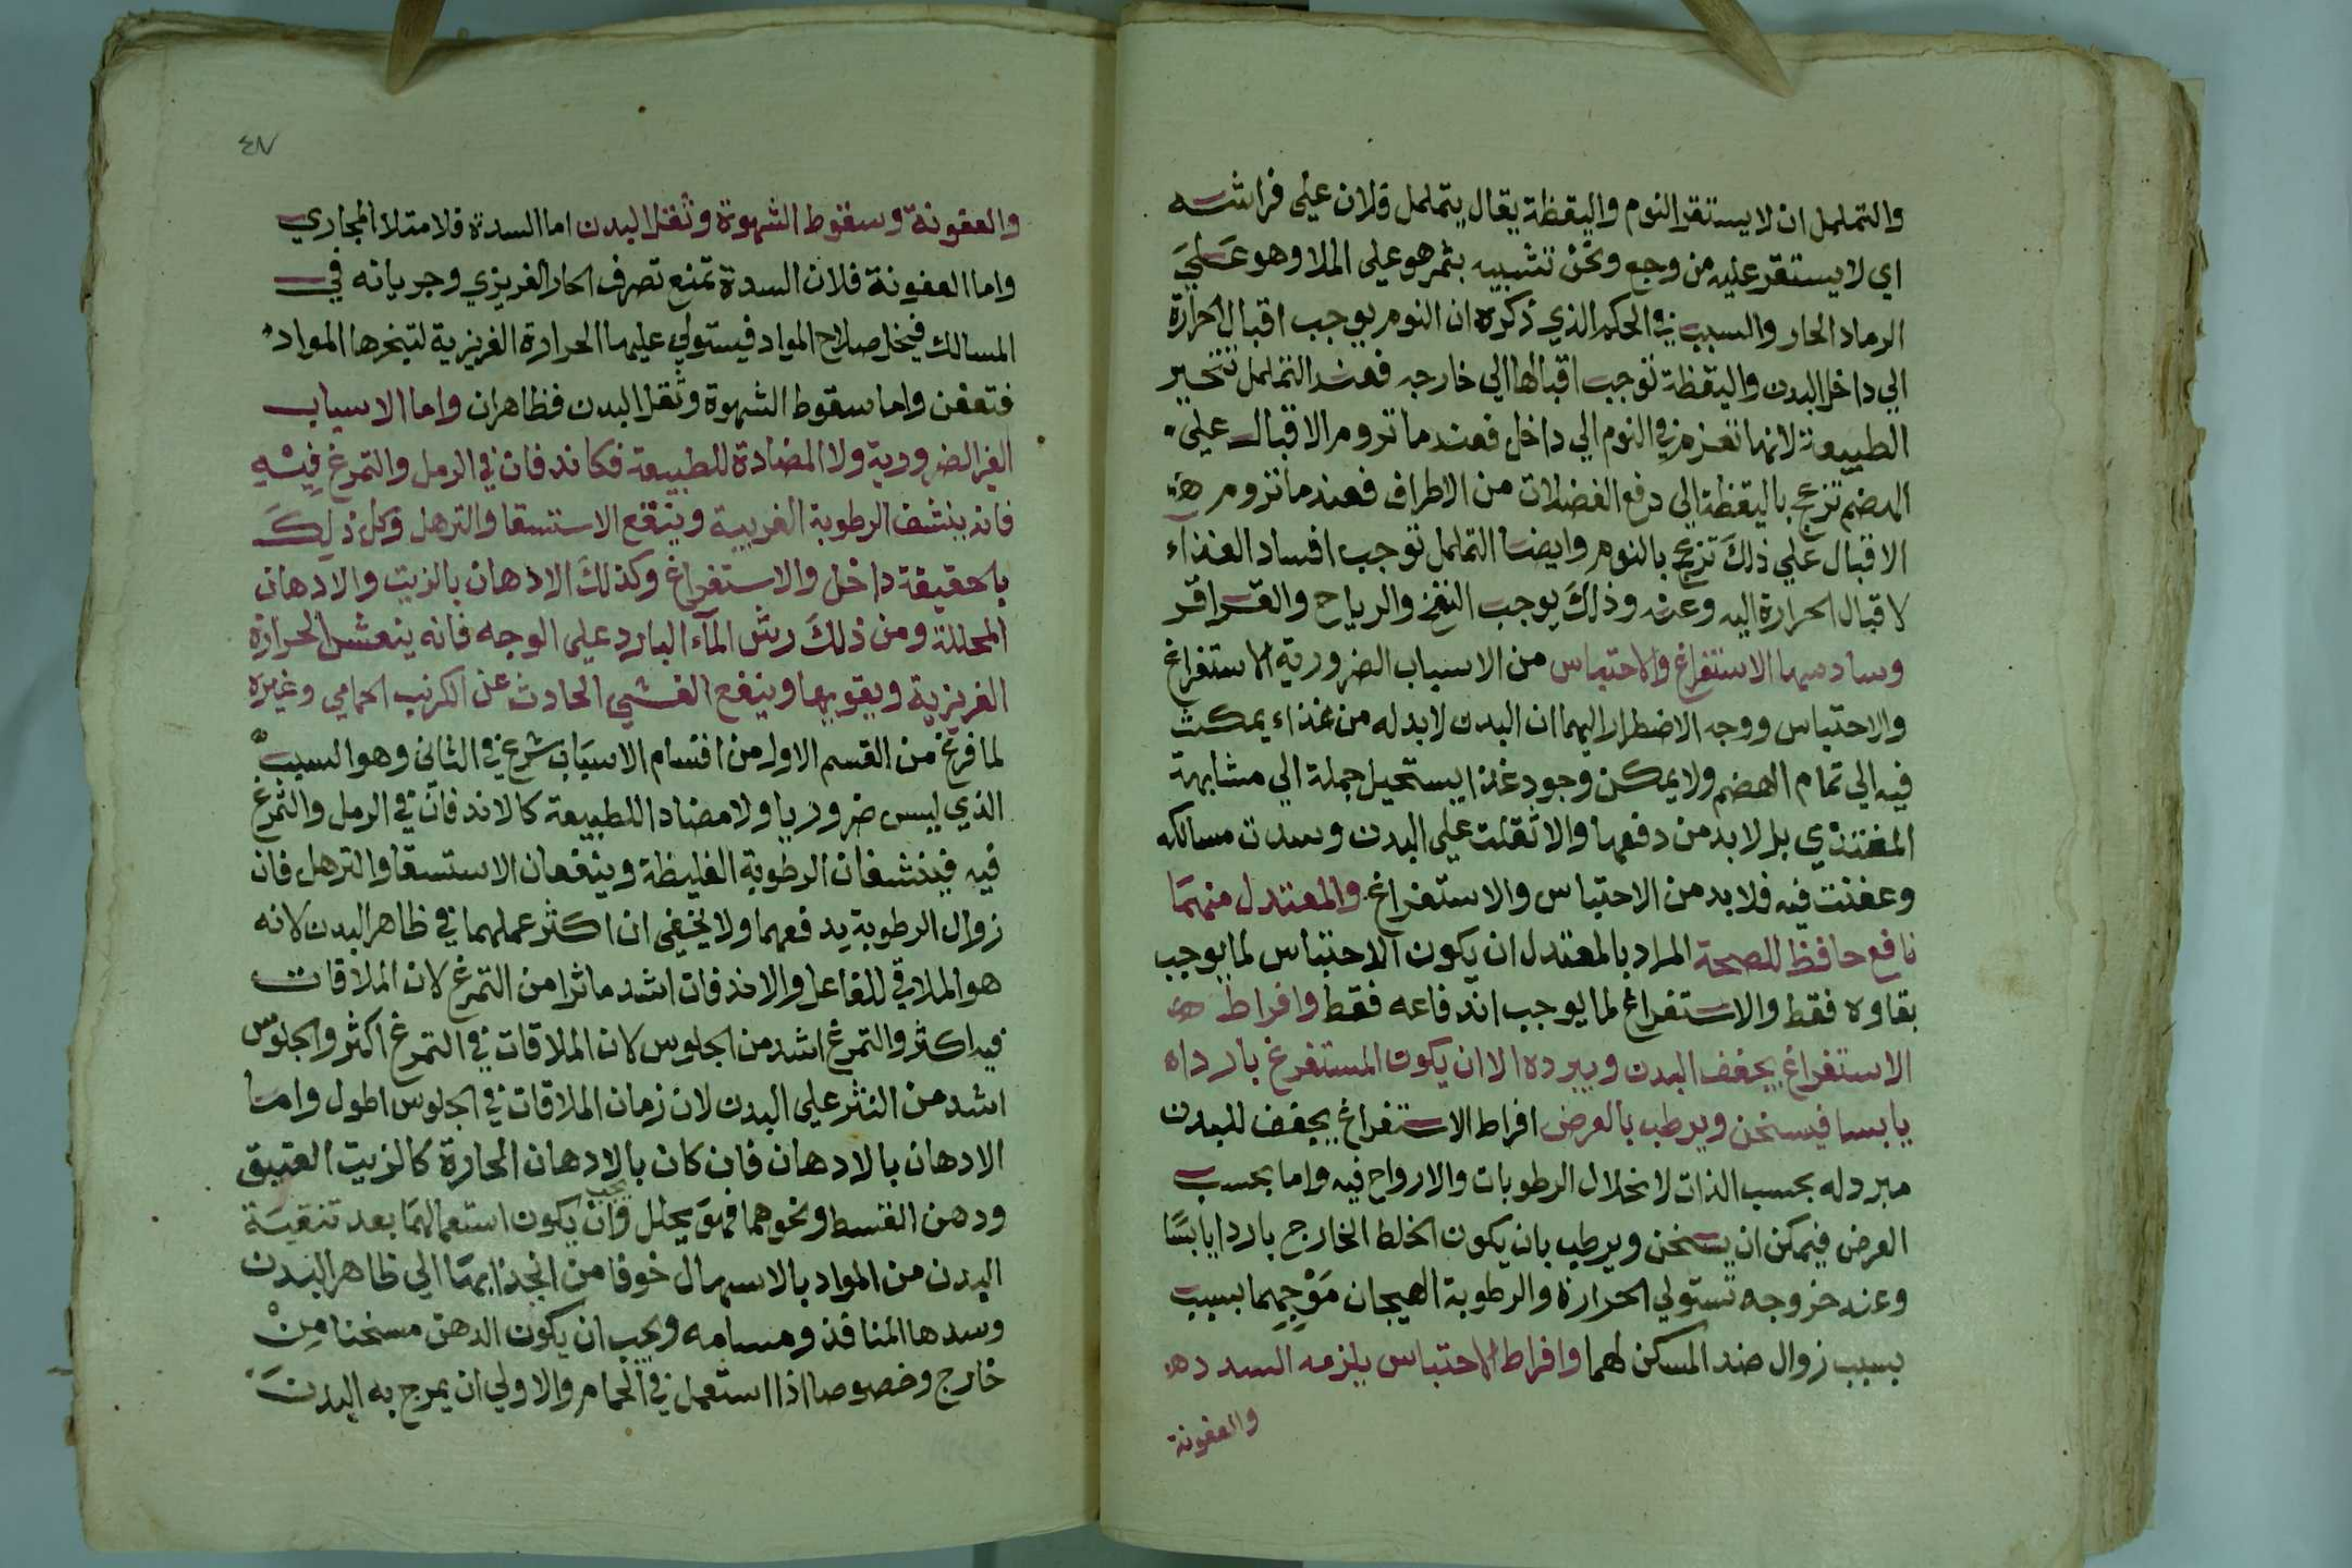 والتململ ان لا يستقر النوم واليقظة يقال يتململ فلان علي فراشه
اي لا يستقر عليه من وجع ونحن تشبيه بثمر هو علي الملا وهو علي
الرماد الحار والسبب في الحكم الذي ذكره ان النوم يوجب اقبال الحرارة
الي داخل البدن واليقظة توجب اقبالها الي خارجه فعند التململ تتحير
الطبيعة لانها تعزم في النوم الي داخل فعند ما تروم الاقبال علي
الهضم تزعج باليقظة الي دفع الفضلات من الاطراف فعند ما تروم
الاقبال علي ذلك تزعج بالنوم وايضا التململ توجب افساد الغذاء
لاقبال الحرارة اليه وعنه وذلك يوجب النفخ والرياح والقراقر
وسادسها الاستفراغ والاحتباس من الاسباب الضرورية الاستفراغ
والاحتباس ووجه الاضطرار اليهما ان البدن لا بد له من غذاء يمكث
فيه الي تمام الهضم ولا يمكن وجود غذا يستحيل جملة الي مشابهة
المغتذي بل لا بد من دفعها والا ثقلت علي البدن وسدت مسالكه
وعفنت فيه فلا بد من الاحتباس والاستفراغ والمعتدل منهما
نافع حافظ للصحة المراد بالمعتدل ان يكون الاحتباس لما يوجب
بقاوه فقط والاستفراغ لما يوجب اندفاعه فقط وافراط
الاستفراغ يجفف البدن ويبرده الا ان يكون المستفرغ باردا
يابسا فيسخن ويرطب بالعرض افراط الاستفراغ يجفف للبدن
مبرد له بحسب الذات لانحلال الرطوبات والارواح فيه واما بحسب
العرض فيمكن ان يسخن ويرطب بان يكون الخلط الخارج باردا يابسا
وعند خروجه تستولي الحرارة والرطوبة الهيجان موجهما بسبب
بسبب زوال ضد المسكن لهما وافراط الاحتباس يلزمه السدد
والعفونة
٤٧
والعفونة وسقوط الشهوة وثقل البدن اما السدة فلامتلا المجاري
واما العفونة فلان السدة تمنع تصرف الحار الغريزي وجريانه في
المسالك فيخل صلاح المواد فيستولي عليها الحرارة الغريزية لتبخرها المواد
فتعفن واما سقوط الشهوة وثقل البدن فظاهران واما الاسباب
الغير الضرورية ولا المضادة للطبيعة فكاندفان في الرمل والتمرغ فيه
فانه ينشف الرطوبة الغريبة وينفع الاستسقا والترهل وكل ذلك
بالحقيقة داخل والاستفراغ وكذلك الادهان بالزيت والادهان
المحللة ومن ذلك رش الماء البارد علي الوجه فانه ينعش الحرارة
الغريزية ويقويها وينفع الغشي الحادث عن الكرب الحمامي وغيره
لما فرغ من القسم الاول من اقسام الاسباب شرع في الثاني وهو السبب
الذي ليس ضروريا ولا مضادا للطبيعة كالاندفان في الرمل والتمرغ
فيه فينشفان الرطوبة الغليظة وينفعان الاستسقا والترهل فان
زوال الرطوبة يدفعهما ولا يخفي ان اكثر عملهما في ظاهر البدن لانه
هو الملاقي للفاعل والاندفان اشد ماثرا من التمرغ لان الملاقات
فيه اكثر والتمرغ اشد من الجلوس لان الملاقات في التمرغ اكثر والجلوس
اشد من النثر علي البدن لان زمان الملاقات في الجلوس اطول واما
الادهان بالادهان فان كان بالادهان الحارة كالزيت العتيق
ودهن القسط ونحوهما فهو يحلل وان يجب يكون استعمالهما بعد تنقية
البدن من المواد بالاسهال خوفا من انجذابها الي ظاهر البدن
وسدها المنافذ ومسامه ويجب ان يكون الدهن مسخنا من
خارج وخصوصا اذا استعمل في الحمام والاولي ان يمرج به البدن